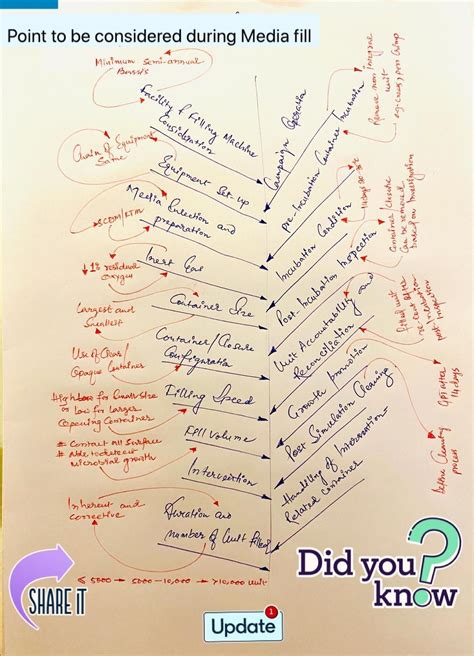 Point to be considered during Media fill
Minimum semi-annual
Bassis
Facility & Filling Machine
Consideration
Chain of Equipment
Same
Equipment Set-up
Media Selection and
preparation
SCDM/FTM
Inert Gas
↓ 1% residual
oxygen
Container Size
Largest and
Smallest
Container/Closure
Configuration
Use of Clear/
Opaque Container
Filling Speed
High/Low for Small size
or Low for Larger
Opening Container
Fill Volume
# Contact all Surface
# Able to detect
microbial growth
Intervention
Inherent and
corrective
Duration and
number of Unit Filled
≤ 5000 → 5000-10,000 → >10,000 unit
Campaign Operation
Pre-Incubation Container Incubation
Remove non integral
unit
Incubation Condition
14 days
Post-Incubation Inspection
Container Closure
can be removed
based on Investigation
Unit Accountability and
Reconciliation
Growth Promotion
GPT after
14 days
Post Simulation Cleaning
Before Cleaning
process
Handling of Intervention
Related Container
SHARE IT
Did you know
?
Update
1